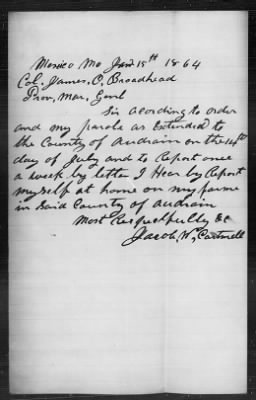 Mexico Mo Jan 15th 1864
Col. James, O, Broadhead
Prov, Mar, Genl
Sir acording to order
and my parole as Extended to
the County of Audrain on the 14th
day of July and to Report once
a week by letter I Hear by Report
myself at home on my farme
in Said County of audrain
Most Respectfully &c
Jacob, W, Cartmell